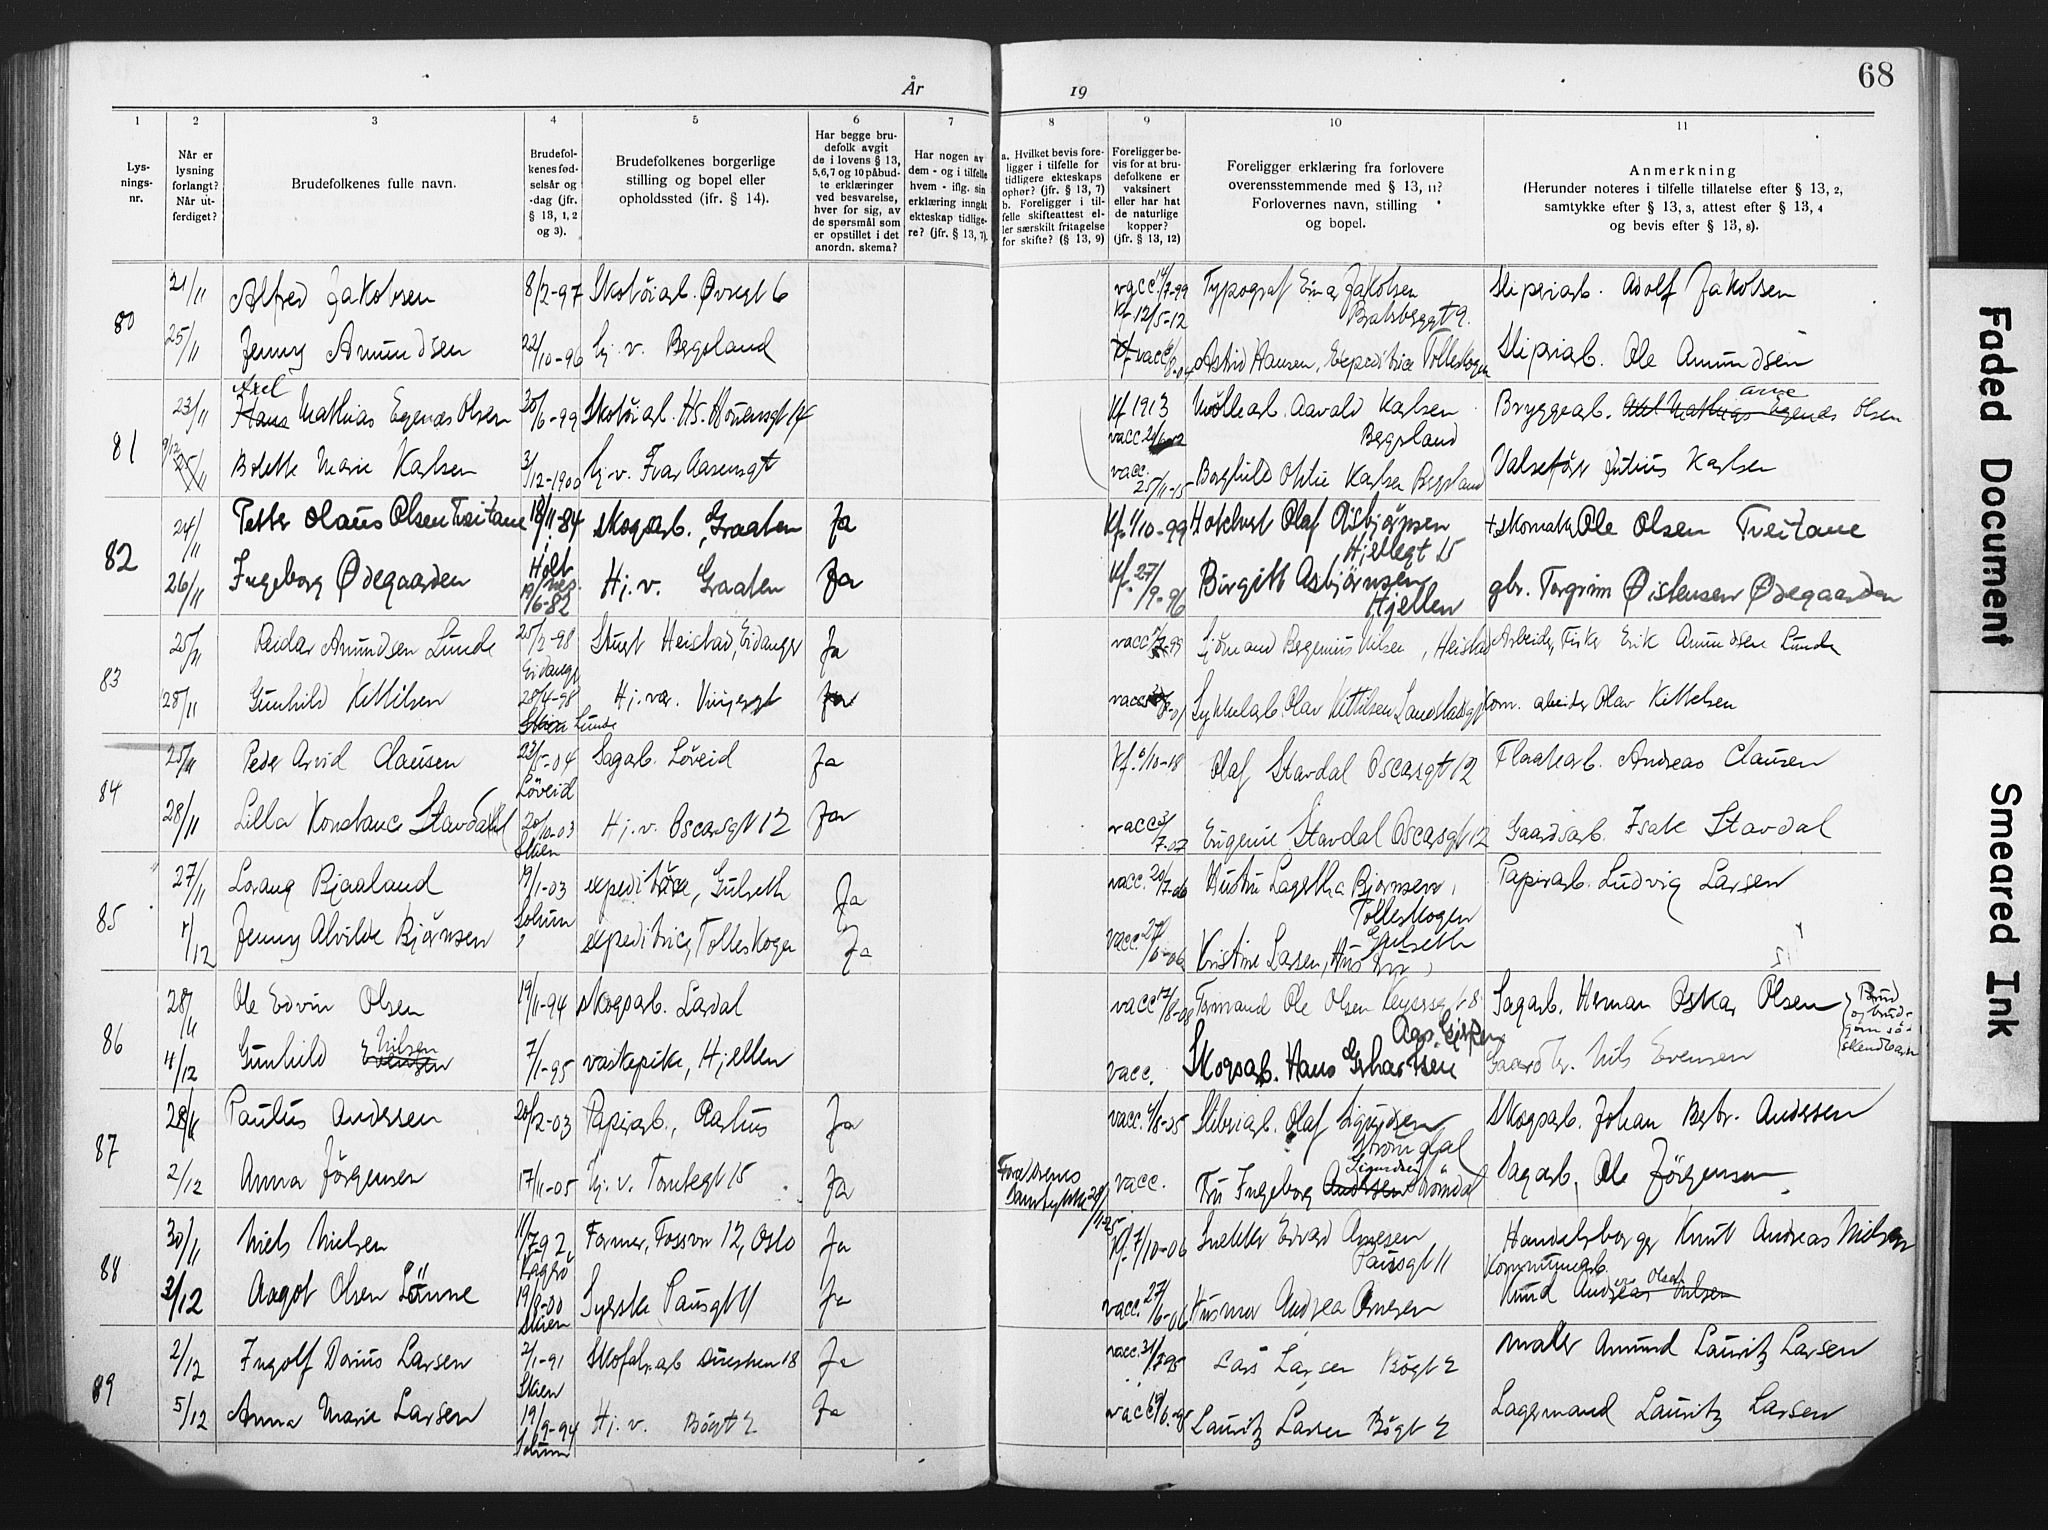 68
År
19
1
2
3
4
5
6
7
8
9
10
11
Lysnings-
nr.
Når er
lysning
forlangt?
Når ut-
ferdiget?
Brudefolkenes fulle navn.
Brudefol-
kenes fød-
selsår og
-dag (jfr.
§ 13, 1, 2
og 3).
Brudefolkenes borgerlige
stilling og bopel eller
opholdssted (jfr. § 14).
Har begge bru-
defolk avgit
de i lovens § 13,
5, 6, 7 og 10 påbud-
te erklæringer
ved besvarelse,
hver for sig, av
de spørsmål som
er opstillet i det
anordn. skema?
Har nogen av
dem - og i tilfelle
hvem - iflg. sin
erklæring inngåt
ekteskap tidlige-
re? (jfr. § 13, 7).
a. Hvilket bevis fore-
ligger i tilfelle for
tidligere ekteskaps
ophør? (jfr. § 13, 7)
b. Foreligger i til-
felle skifteattest el-
ler særskilt fritagelse
for skifte? (§ 13, 9)
Foreligger be-
vis for at bru-
defolkene er
vaksinert
eller har hat
de naturlige
kopper?
(jfr. § 13, 12)
Foreligger erklæring fra forlovere
overensstemmende med § 13, 11?
Forlovernes navn, stilling
og bopel.
Anmerkning
(Herunder noteres i tilfelle tillatelse efter § 13, 2,
samtykke efter § 13, 3, attest efter § 13, 4
og bevis efter § 13, 8).
80
21/11 Alfred Jakobsen 8/2-97 Skotøiarb. Øvregt 6 vacc 14/7-99 Typograf Einar Jakobsen Sliperiarb. Adolf Jakobsen
Kf 12/5-12 Bratsbergt 9.
25/11 Jenny Amundsen 22/10-96 hj. v. Bergsland vacc Astrid Hansen, Expeditrice Tolleskogen Sliperiarb. Ole Amundsen
81
Axel
23/11 Hans Mathias Egenæs Olsen 30/6-99 Skotøiarb. Kf 1913 Møllearb. Aavald Karlsen Bryggearb. Olsen
Bergsland
9/12 25/11 Bolette Marie Karlsen 3/12-1900 hj. v. Ivar Aasensgt vacc. 25/11-15 Borghild Otilie Karlsen Bergsland Valsefører Julius Karlsen
82
24/11 Petter Olaus Olsen Tveitane 18/11-84 skogsarb., Graaten Ja Kf. 1/10-99 Olaf Asbjörnsen + skomaker Ole Olsen Tveitane
Holt Hjellegt 15
26/11 Ingeborg Ødegaarden 19/6-82 Hj. v. Graaten Ja Kf. 27/9-96 Birgitt Asbjörnsen gbr. Torgrim Øistensen Ødegaarden
Hjellen
83
25/11 Reidar Amundsen Lunde 25/2-98 Heistad, Eidanger Ja vacc Sjömand Bergenius Nilsen, Heistad Arbeider, Fisker Erik Amundsen Lunde
Eidanger
28/11 Gunhild Kittilsen 28/4-98 Hj. vær. Ja vacc Sykkelarb. Olav Kittilsen Landstadsgt Kom. arbeider Olav Kittelsen
Lunde
84
25/11 Peder Arvid Clausen 23/5-04 Sagarb. Löveid Ja Kf. 6/10-18 Olaf Stavdal Oscarsgt 12 Flaatearb. Andreas Clausen
Löveid
28/11 Lilla Konstanse Stavdahl 20/10-03 Hj. v. Oscarsgt 12 Ja vacc 3/7-07 Eugenie Stavdal Oscarsgt 12 Gaardsarb. Isak Stavdal
Skien
85
27/11 Lorang Bjaaland 19/1-03 expeditør, Gulseth Ja vacc. 20/7-06 Hustru Lagertha Bjørnsen, Papirarb. Ludvig Larsen
Solum Tolleskogen
4/12 Jenny Alvilde Bjørnsen expeditrice, Tolleskogen Ja vacc. 27/6-06 Kristine Larsen, Hustru, Gulseth
86
28/11 Ole Edvin Olsen 19/11-94 skogsarb. Lardal vacc 12/8-08 Formand Ole Olsen Keysersgt 8 Sagarb. Herman Oskar Olsen
Brud
og brud-
gom sö-
skendebarn
Nilsen
4/12 Gunhild Evensen 7/1-95 vaskepike, Hjellen vacc. Skogsarb. Hans Gerhardsen Gaardbr. Nils Evensen
87
28/11 Paulus Andersen 20/2-03 Papirarb., Aarhus Ja vacc. 4/8-25 Sliberiarb. Olaf Sigurdsen Skogsarb. Johan Bertr. Andersen
Strömdal
Forældrenes
samtykke 28/11-25
Sigurdsen
2/12 Anna Jörgensen 17/11-05 hj. v. Tomtegt 15 Ja vacc. Fru Ingeborg Andersen Strömdal Sagarb. Ole Jörgensen
88
30/11 Niels Nielsen 11/7 92 Former, Fossvn 12, Oslo Ja Kf. 7/10-06 Snekker Edvard Arnesen Handelsborger Knut Andreas Nielsen
Kragerö Pausgt 11 Kommunearb.
3/12 Aagot Olsen Lönne 19/9-00 Syerske Pausgt 11 Ja vacc. 27/6-06 Husmor Andrea Arnesen Knud
Skien
89
2/12 Ingolf Darius Larsen 2/1-91 Skofabr.arb Ja vacc. Lars Larsen Bögt 2 maler Amund Lauritz Larsen
Skien
5/12 Anna Marie Larsen 19/9-94 Hj. v. Bögt 2 Ja vacc Lauritz Larsen Bögt 2 Lagermand Lauritz Larsen
Solum
Faded Document
Smeared Ink